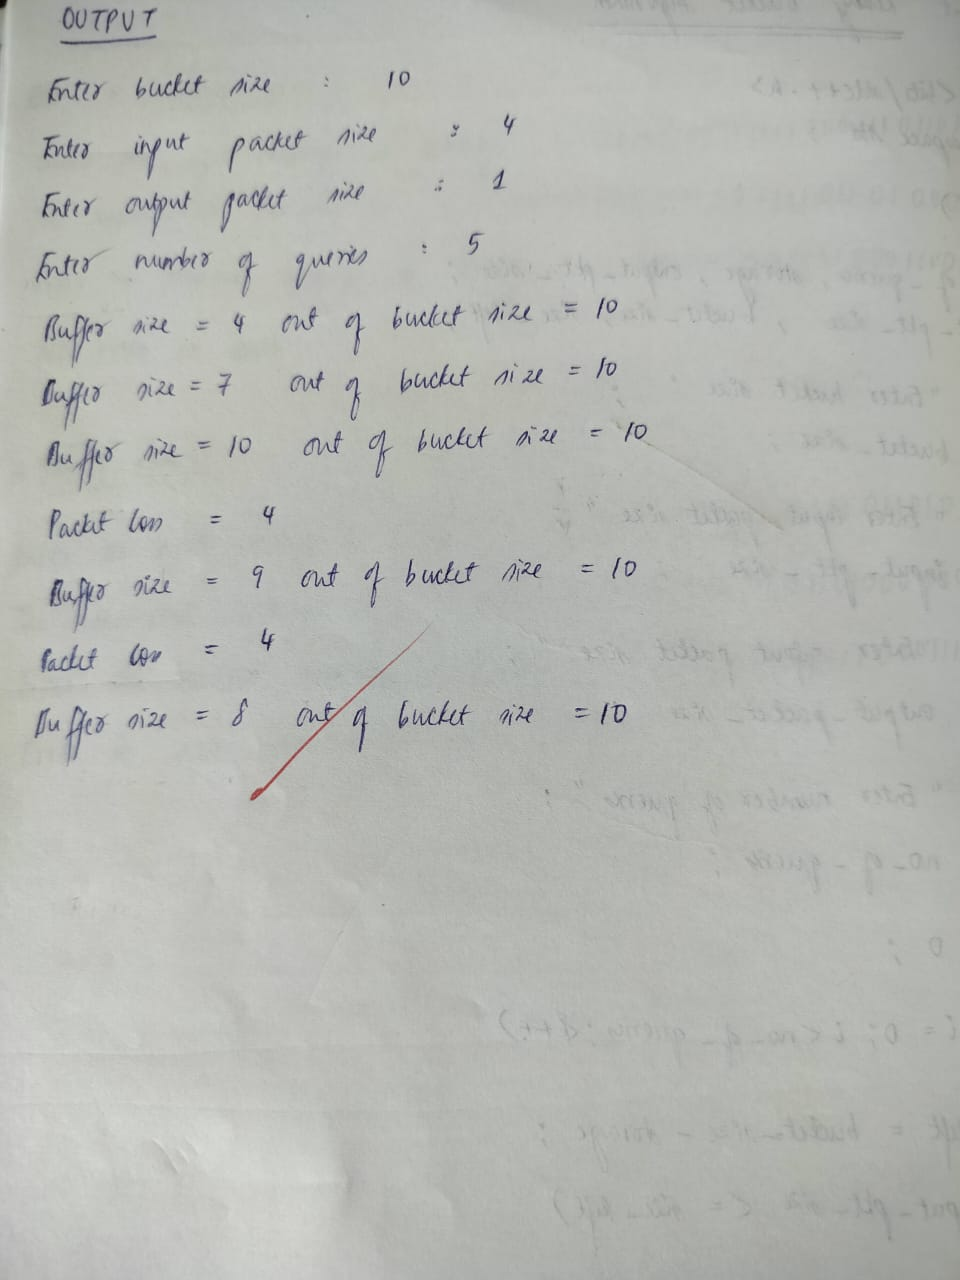 OUTPUT
Enter bucket size : 10
Enter input packet size : 4
Enter output packet size : 1
Enter number of queries : 5
Buffer size = 4 out of bucket size = 10
Buffer size = 7 out of bucket size = 10
Buffer size = 10 out of bucket size = 10
Packet loss = 4
Buffer size = 9 out of bucket size = 10
Packet loss = 4
Buffer size = 8 out of bucket size = 10